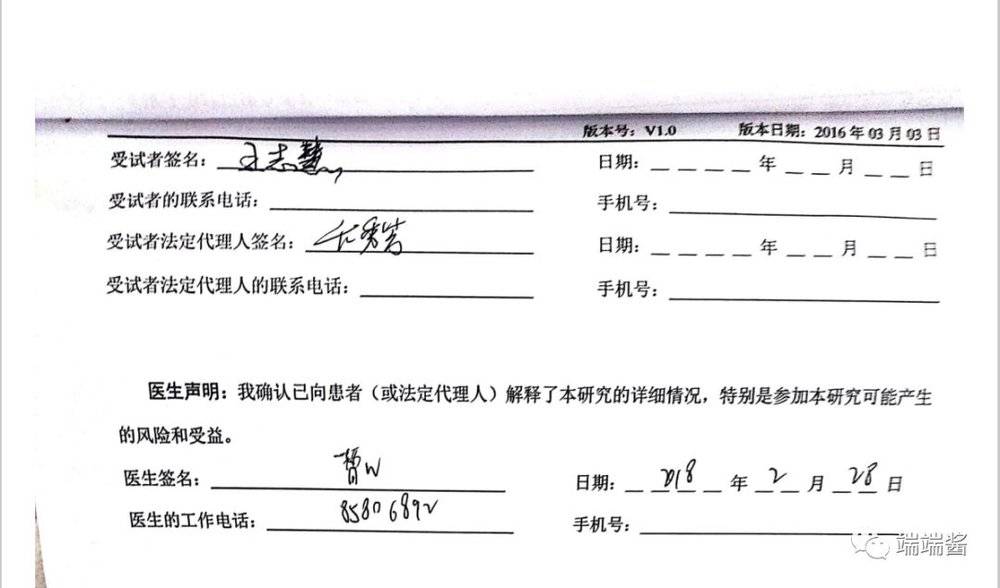 版本号：V1.0 版本日期：2016 年 03 月 03 日
受试者签名：王志慧 日期：＿＿＿＿年＿＿月＿＿日
受试者的联系电话： 手机号：
受试者法定代理人签名： 日期：＿＿＿＿年＿＿月＿＿日
受试者法定代理人的联系电话： 手机号：
医生声明：我确认已向患者（或法定代理人）解释了本研究的详细情况，特别是参加本研究可能产生
的风险和受益。
医生签名： 日期：2018 年 2 月 28 日
医生的工作电话：85806892 手机号：
端端酱